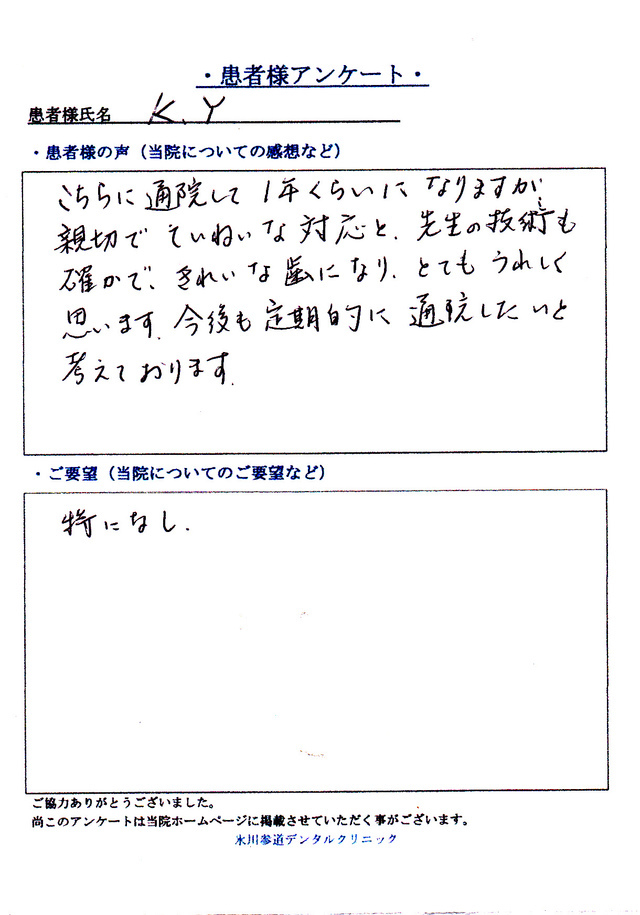 ・患者様アンケート・
患者様氏名 K.Y
・患者様の声（当院についての感想など）
こちらに通院して1年くらいになりますが、
親切でていねいな対応と、先生の技術も
確かで、きれいな歯になり、とてもうれしく
思います。今後も定期的に通院したいと
考えております。
・ご要望（当院についてのご要望など）
特になし．
ご協力ありがとうございました。
尚このアンケートは当院ホームページに掲載させていただく事がございます。
氷川参道デンタルクリニック